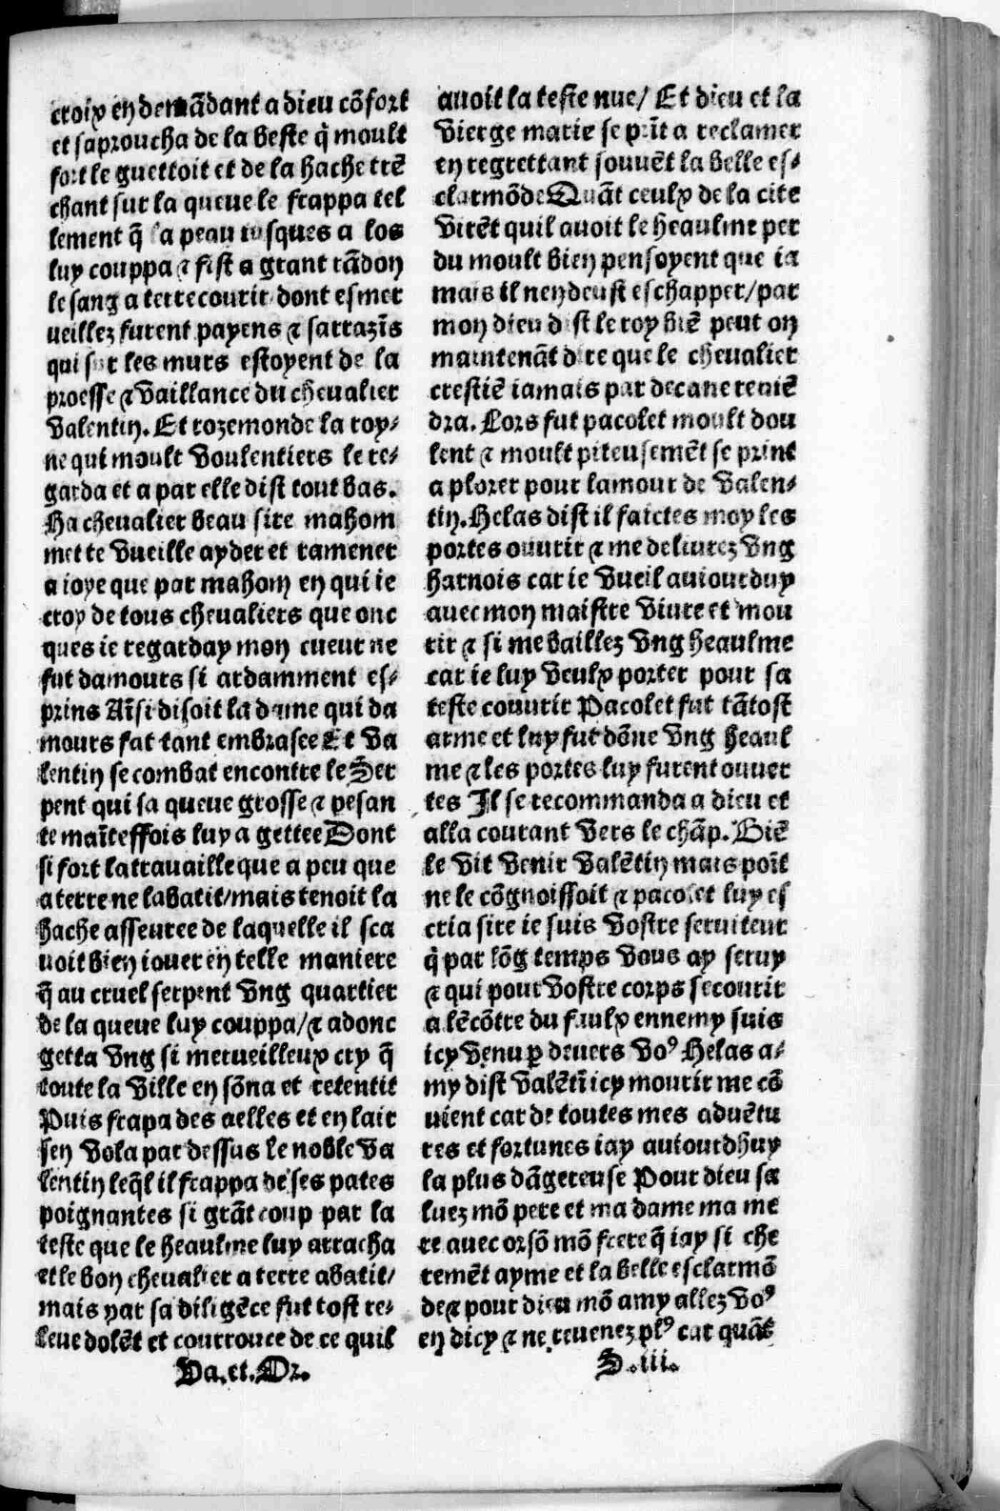 croix en demãdant a dieu cõfort
et saproucha de la beste q̃ moult
fort le guettoit et de la hache trẽ
chant sur la queue le frappa tel
lement q̃ la peau iusques a los
luy couppa ⁊ fist a grant rãdon
le sang a terre courir dont esmer
ueillez furent payens ⁊ sarrazĩs
qui sur les murs estoyent de la
proesse ⁊ vaillance du cheualier
valentin. Et rozemonde la roy-
ne qui moult voulentiers le re-
garda et a par elle dist tout bas.
Ha cheualier beau sire mahom
met te vueille ayder et ramener
a ioye que par mahom en qui ie
croy de tous cheualiers que onc
ques ie regarday mon cueur ne
fut damours si ardamment es-
prins Aĩsi disoit la dame qui da
mours fat tant embrasee Et va
lentin se combat encontre le Ser
pent qui sa queue grosse ⁊ pesan
te maĩteffois luy a gettee Dont
si fort la trauaille que a peu que
a terre ne labatit/mais tenoit la
hache asseuree de laquelle il sca
uoit bien iouer en telle maniere
q̃ au cruel serpent vng quartier
de la queue luy couppa/⁊ adonc
getta vng si merueilleux cry q̃
toute la ville en sõna et retentit
Puis frapa des aelles et en lair
sen vola par dessus le noble va
lentin leq̃l il frappa de ses pates
poignantes si grãt coup par la
teste que le heaulme luy arracha
et le bon cheualier a terre abatit/
mais par sa diligẽce fut tost re-
leue dolẽt et courrouce de ce quil
Va.et.Or.
auoit la teste nue/ Et dieu et la
vierge marie se prĩt a reclamer
en regrettant souuẽt la belle es-
clarmõde Quãt ceulx de la cite
virẽt quil auoit le heaulme per
du moult bien pensoyent que ia
mais il nen deust eschapper/par
mon dieu dist le roy biẽ peut on
maintenãt dire que le cheualier
crestiẽ iamais par deca ne reuiẽ
dra. Lors fut pacolet moult dou
lent ⁊ moult piteusemẽt se print
a plorer pour lamour de valen-
tin. Helas dist il faictes moy les
portes ouurir ⁊ me deliurez vng
harnois car ie vueil auiourduy
auec mon maistre viure et mou
rir ⁊ si me baillez vng heaulme
car ie luy veulx porter pour sa
teste couurir Pacolet fut tãtost
arme et luy fut dõne vng heaul
me ⁊ les portes luy furent ouuer
tes Il se recommanda a dieu et
alla courant vers le chãp. Biẽ
le vit venir valẽtin mais poĩt
ne le cõgnoissoit ⁊ pacolet luy es
cria sire ie suis vostre seruiteur
q̃ par lõg temps vous ay seruy
⁊ qui pour vostre corps secourir
a lẽcõtre du faulx ennemy suis
icy venu ꝑ deuers voꝰ Helas a-
my dist valẽtĩ icy mourir me cõ
uient car de toutes mes aduẽtu
res et fortunes iay auiourdhuy
la plus dãgereuse Pour dieu sa
luez mõ pere et ma dame ma me
re auec orsõ mõ frere q̃ iay si che
remẽt ayme et la belle esclarmõ
de⁊ pour dieu mõ amy allez voꝰ
en dicy ⁊ ne reuenez plꝰ car quãt
S.iii.